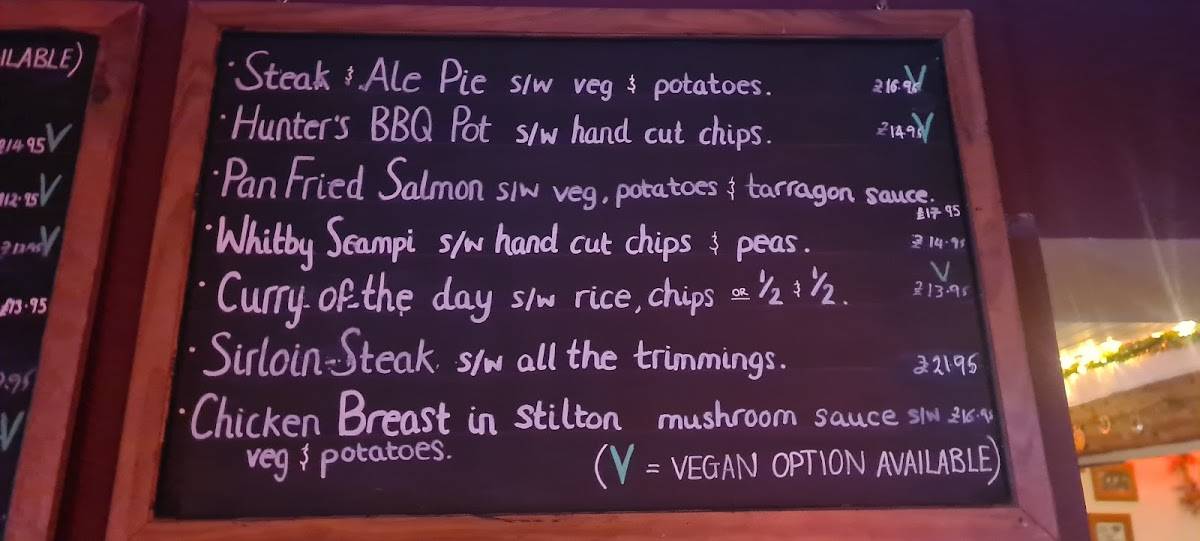 ILABLE)
£14.95 V
£12.95 V
V
£13.95
9.95
V
· Steak & Ale Pie s/w veg & potatoes. £16.95 V
· Hunter's BBQ Pot s/w hand cut chips. £14.95 V
· Pan Fried Salmon s/w veg, potatoes & tarragon sauce.
£17.95
· Whitby Scampi s/w hand cut chips & peas. £14.95
V
· Curry of the day s/w rice, chips OR 1/2 & 1/2. £13.95
· Sirloin Steak s/w all the trimmings. £21.95
· Chicken Breast in Stilton mushroom sauce s/w £16.95
veg & potatoes.
(V = VEGAN OPTION AVAILABLE)